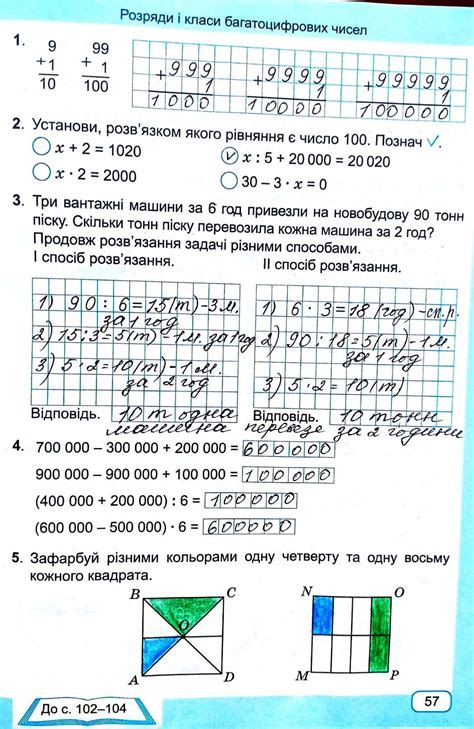 Розряди і класи багатоцифрових чисел
1. 9 99 999 9999 99999
+1 + 1 + 1 + 1 + 1
10 100 1000 10000 100000
2. Установи, розв'язком якого рівняння є число 100. Познач ✓.
x + 2 = 1020 ✓ x : 5 + 20 000 = 20 020
x · 2 = 2000 30 – 3 · x = 0
3. Три вантажні машини за 6 год привезли на новобудову 90 тонн
піску. Скільки тонн піску перевозила кожна машина за 2 год?
Продовж розв'язання задачі різними способами.
І спосіб розв'язання. ІІ спосіб розв'язання.
1) 90 : 6 = 15(т) – 3 м. 1) 6 · 3 = 18 (год) – сп.р.
за 1 год
2) 15 : 3 = 5(т) – 1 м. за 1 год 2) 90 : 18 = 5(т) – 1 м.
за 1 год
3) 5 · 2 = 10(т) – 1 м. 3) 5 · 2 = 10(т)
за 2 год
Відповідь. 10 т одна Відповідь. 10 тонн
машина перевезе за 2 години
4. 700 000 – 300 000 + 200 000 = 600000
900 000 – 900 000 + 100 000 = 100000
(400 000 + 200 000) : 6 = 100000
(600 000 – 500 000) · 6 = 600000
5. Зафарбуй різними кольорами одну четверту та одну восьму
кожного квадрата.
B C N O
O
A D M P
57
До с. 102–104